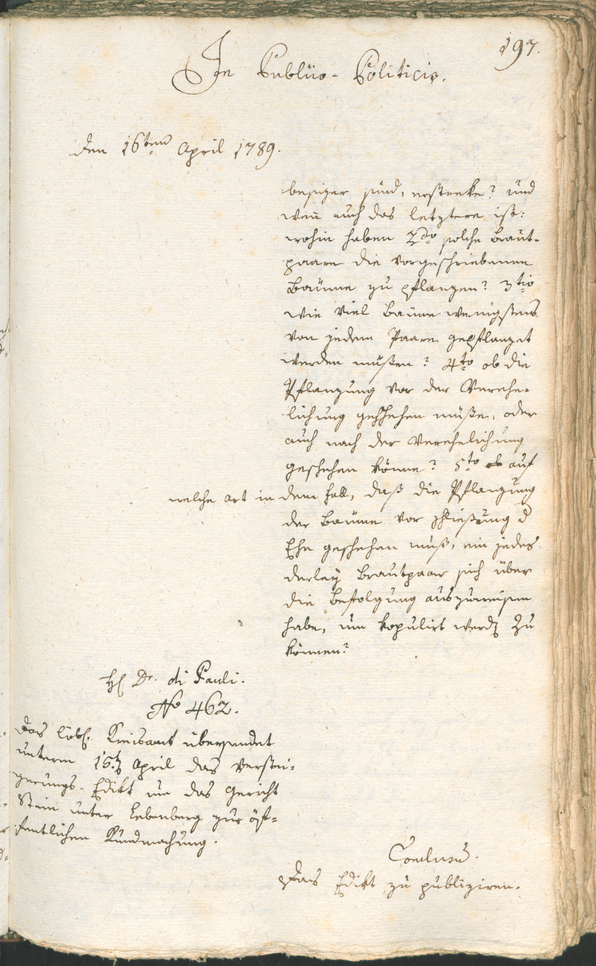 197.
In Publico-Politicis.
den 16ten April 1789.
besizer sind, erstreke? und
wen auch das leztere ist:
wohin haben 2do solche Braut-
paare die vorgeschriebenen
Bäume zu pflanzen? 3tio
wie viel Bäume wenigstens
von jedem Paare gepflanzet
werden müßen? 4to ob die
Pflanzung vor der Vereche-
lichung geschehen müße, oder
auch nach der Verechelichung
geschehen könne? 5to ob auf
welche art in dem Fall, daß die Pflanzung
der Bäume vor schließung d
Ehe geschehen muß, ein jedes
derley Brautpaar sich über
die befolgung auszuweisen
habe, um kopulirt werd zu
können?
H Dr. di Pauli.
No 462.
Das löbl. Kreisamt übersendet
unterm 15t April das Verstei-
gerungs-Edikt um das Gericht
Stein unter Lebenberg zur öf-
fentlichen Kundmachung.
Conclusum.
Das Edikt zu publiziren.